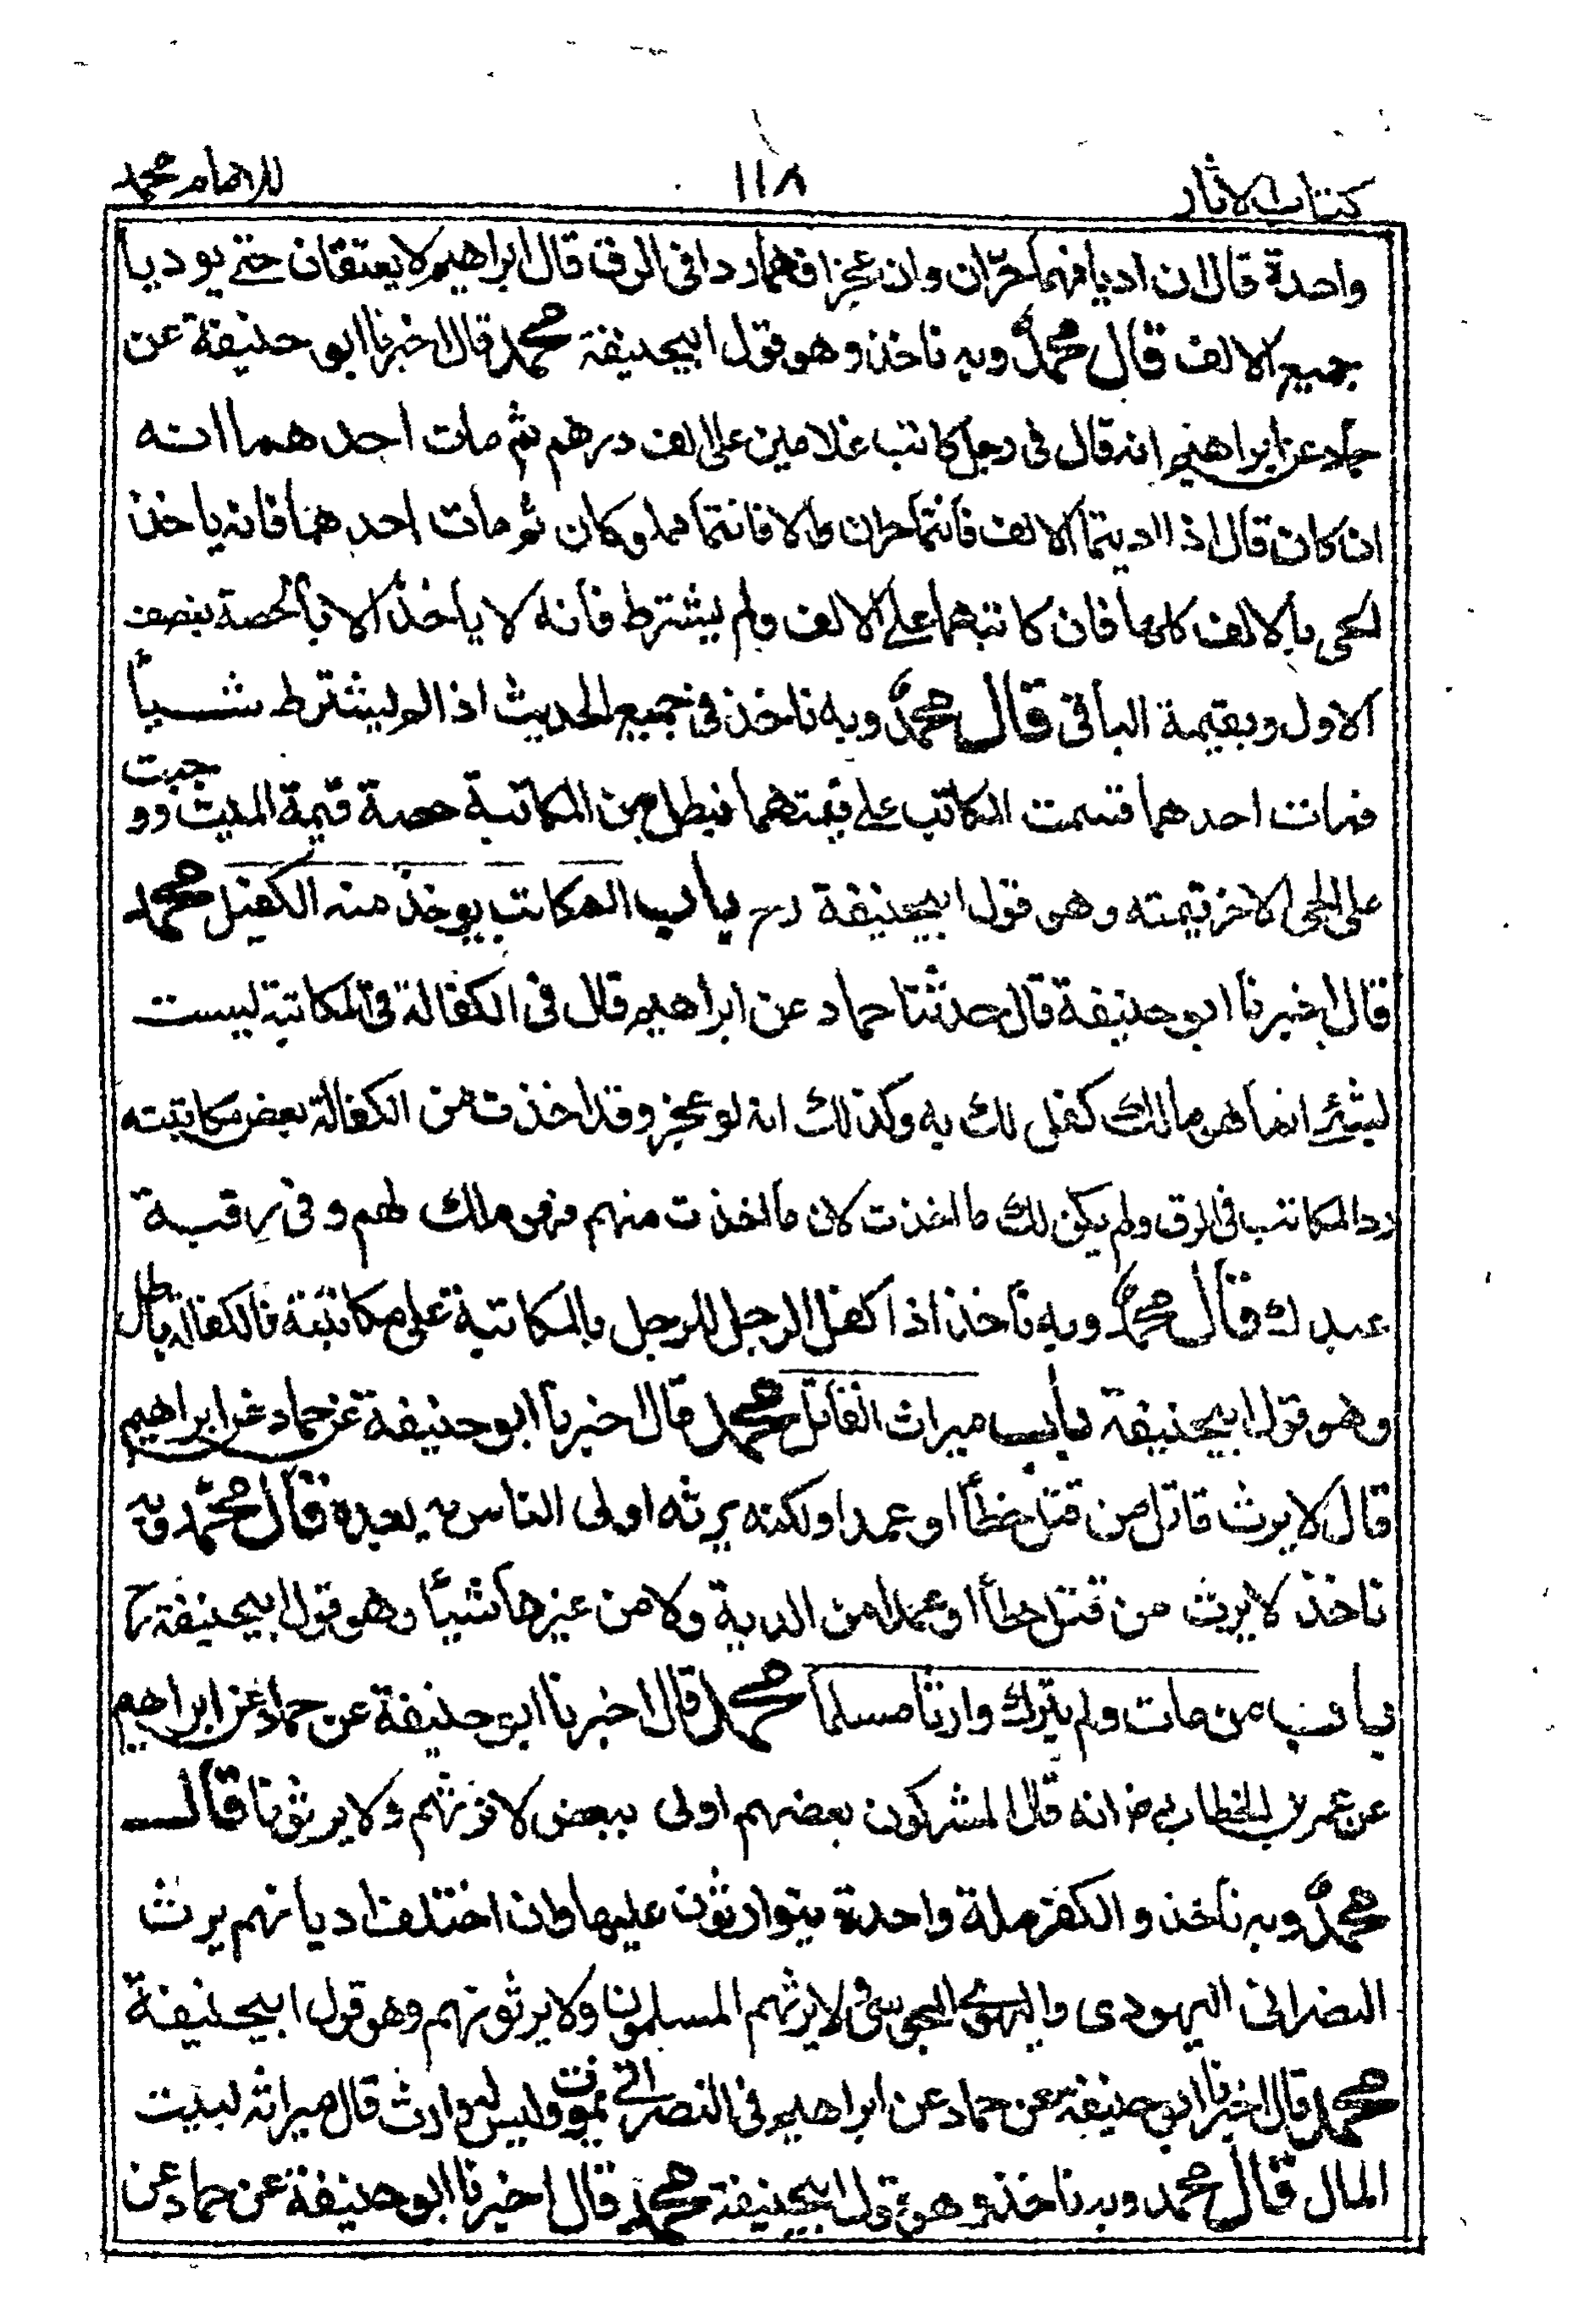 كتاب الاثار ١١٨ للامام محمد
واحدة قال ان اديا فهما حرّان وان عجزا فهما ردا فى الرق قال ابراهيم لا يعتقان حتے يوديا
جميع الالف قال محمدؒ وبه ناخذ وهو قول ابيحنيفة محمد قال اخبرنا ابو حنيفة عن
حماد عن ابراهيم انه قال فى رجل كاتب غلامين على الف درهم ثم مات احدهما انه
ان كان قال اذا اديتما الالف فانتما حران والا فانتما مملوكان ثم مات احدهما فانه ياخذ
الحى بالالف كلها فان كاتبهما على الالف ولم يشترط فانه لا ياخذ الا بالحصة بنصف
الاول وبقيمة الباقى قال محمدؒ وبه ناخذ فى جميع الحديث اذا لم يشترط شيأ
فمات احدهما قسمت المكاتب على قيمتهما فبطل من المكاتبة حصة قيمة الميت ووجبت
على الحى الاخر قيمته وهو قول ابيحنيفة رح باب المكاتب يوخذ منه الكفيل محمد
قال اخبرنا ابو حنيفة قال حدثنا حماد عن ابراهيم قال فى الكفالة فى المكاتبة ليست
بشئ انما هو مالك كفل لك به وكذلك انه لو عجز وقد اخذت من الكفالة بعض مكاتبته
رد المكاتب فى الرق ولم يكن لك ما اخذت لان ما اخذت منهم فهو ملك لهم وفى رقبة
عبدك قال محمدؒ وبه ناخذ اذا كفل الرجل للرجل بالمكاتبة على مكاتبته فالكفالة باطل
وهو قول ابيحنيفة باب ميراث القاتل محمد قال اخبرنا ابو حنيفة عن حماد عن ابراهيم
قال لا يرث قاتل من قتل خطأ او عمدا ولكنه يرثه اولى الناس به بعده قال محمد وبه
ناخذ لا يرث من قتل خطأ او عمدا من الدية ولا من غيرها شيأ وهو قول ابيحنيفة رح
باب من مات ولم يترك وارثا مسلما محمد قال اخبرنا ابو حنيفة عن حماد عن ابراهيم
عن عمر بن الخطاب رض انه قال المشركون بعضهم اولى ببعض لا نرثهم ولا يرثونا قال
محمدؒ وبه ناخذ والكفر ملة واحدة يتوارثون عليها وان اختلف اديانهم يرث
النصرانى اليهودى واليهودى المجوسى لا يرثهم المسلمون ولا يرثونهم وهو قول ابيحنيفة
محمد قال اخبرنا ابو حنيفة عن حماد عن ابراهيم فى النصرانى يموت وليس له وارث قال ميراثه لبيت
المال قال محمد وبه ناخذ وهو قول ابيحنيفة محمد قال اخبرنا ابو حنيفة عن حماد عن